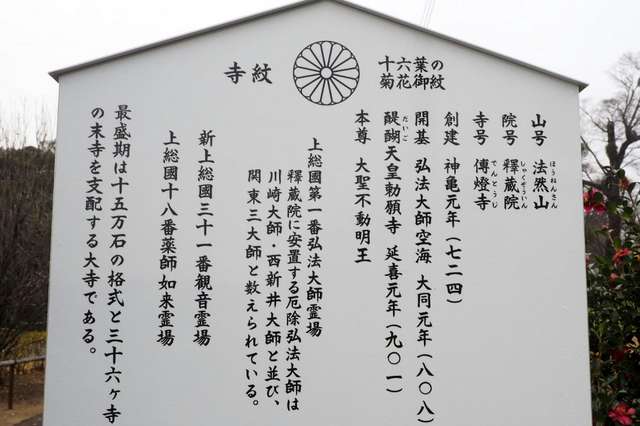 十六葉の
菊花御紋
寺紋
山号 法然山
ほうねんさん
院号 釋蔵院
しゃくぞういん
寺号 傳燈寺
でんとうじ
創建 神亀元年(七二四)
開基 弘法大師空海 大同元年(八〇八)
醍醐天皇勅願寺 延喜元年(九〇一)
だいご
本尊 大聖不動明王
上総國第一番弘法大師霊場
釋蔵院に安置する厄除弘法大師は
川崎大師・西新井大師と並び、
関東三大師と数えられている。
新上総國三十一番観音霊場
上総國十八番薬師如来霊場
最盛期は十五万石の格式と三十六ヶ寺
の末寺を支配する大寺である。